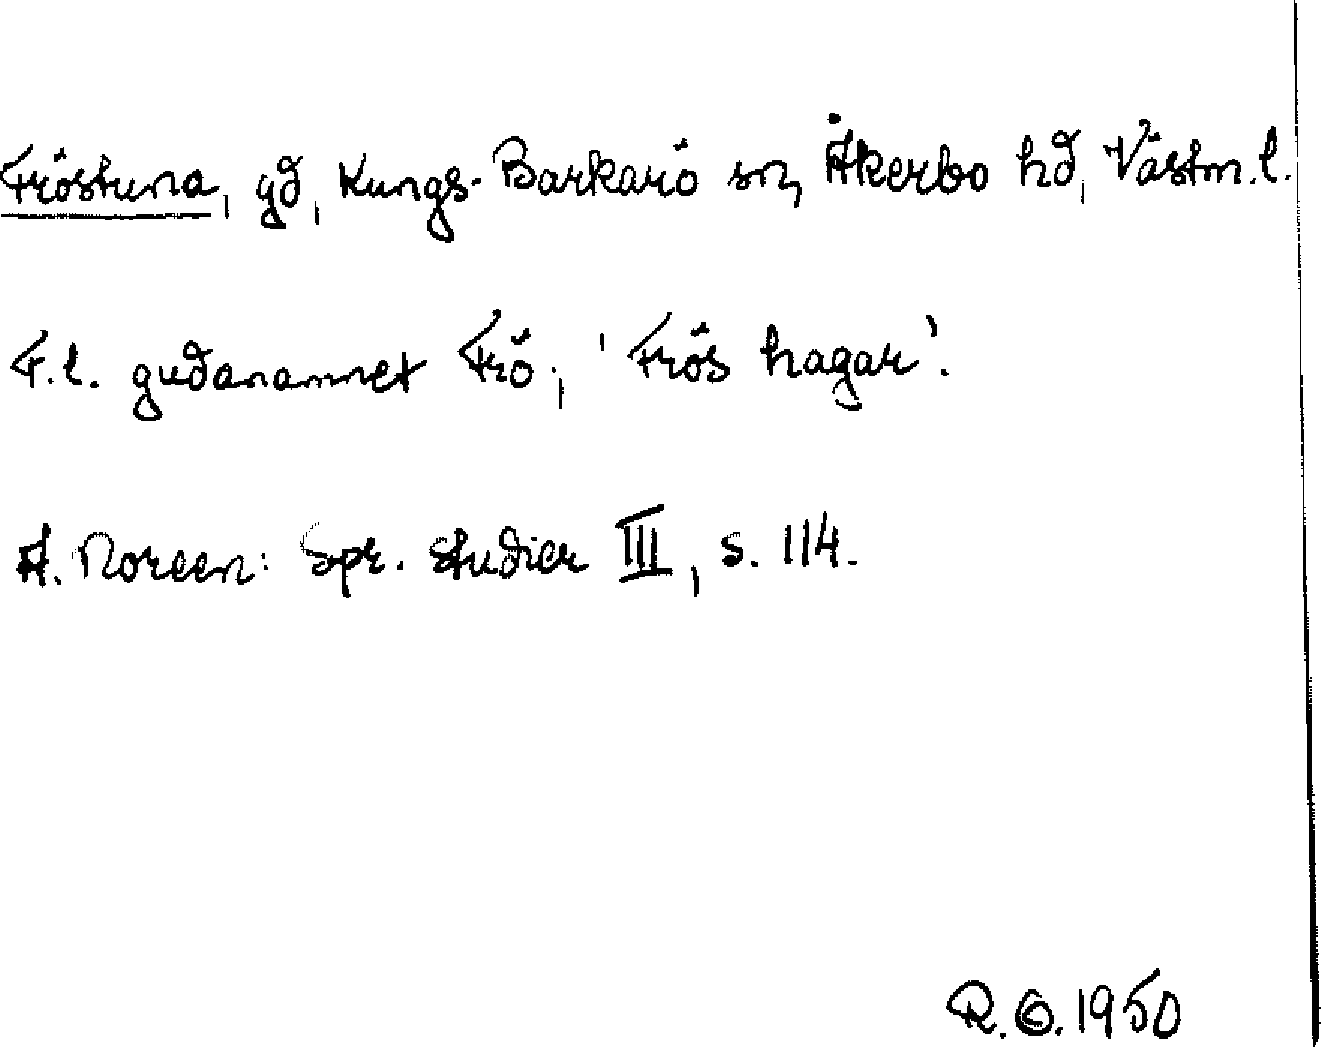 Fröstuna, gd, Kungs-Barkarö sn, Åkerbo hd, Västm. l.
F.l. gudanamnet Frö; 'Frös hagar'.
A. Noreen: Spr. studier III, s. 114.
R. O. 1950